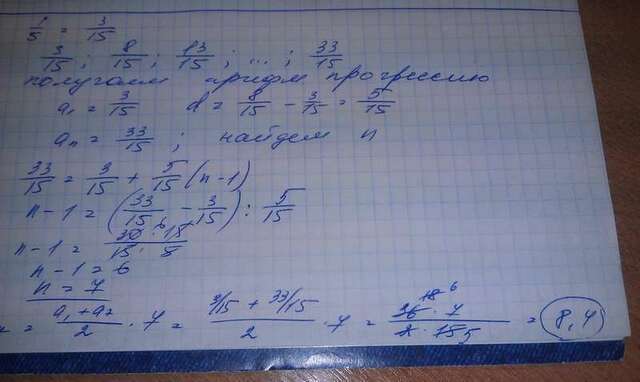 1/5 = 3/15
3/15 ; 8/15 ; 13/15 ; ... ; 33/15
получаем арифм прогрессию
a₁ = 3/15 d = 8/15 - 3/15 = 5/15
aₙ = 33/15 ; найдем n
33/15 = 3/15 + 5/15 (n-1)
n-1 = (33/15 - 3/15) : 5/15
n-1 = 30 6 · 15 / 15 · 5
n-1 = 6
n = 7
= a₁ + a₇ / 2 · 7 = 3/15 + 33/15 / 2 · 7 = 36 18 6 · 7 / 2 · 15 5 = 8,4